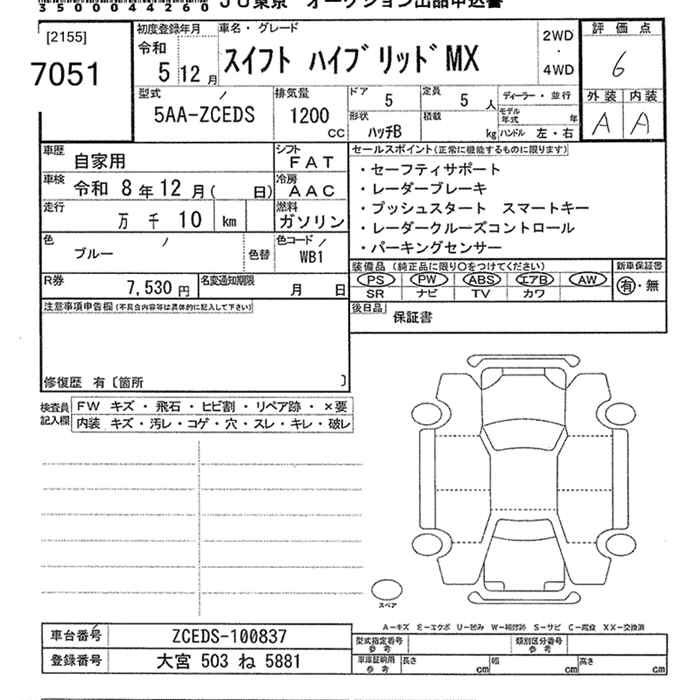 35000442660 JU東京 オークション出品申込書
[2155]
7051
初度登録年月
令和
5 12 月
車名・グレード
スイフト ハイブリッドMX
2WD
・
4WD
評価点
6
型式
5AA-ZCEDS
排気量
1200
CC
ドア
5
定員
5 人
ディーラー・並行
モデル年式 年
形状
ハッチB
積載
kg
ハンドル 左・右
外装 内装
A A
車歴
自家用
シフト
FAT
車検
令和 8年12月( 日)
冷房
AAC
走行
万 千 10 km
燃料
ガソリン
色
ブルー
色替
色コード
WB1
R券
7,530 円
名変通知期限
月 日
セールスポイント(正常に機能するものに限ります)
・セーフティサポート
・レーダーブレーキ
・プッシュスタート スマートキー
・レーダークルーズコントロール
・パーキングセンサー
装備品(純正品に限り○をつけてください)
新車保証書
PS PW ABS エアB AW
有・無
SR ナビ TV カワ
後日品
保証書
注意事項申告欄(不具合内容等は具体的に記入して下さい)
修復歴 有〔箇所 〕
検査員記入欄
FW キズ・飛石・ヒビ割・リペア跡・×要
内装 キズ・汚レ・コゲ・穴・スレ・キレ・破レ
スペア
A-キズ E-エクボ U-凹み W-補修跡 S-サビ C-腐食 XX-交換済
車台番号 ZCEDS-100837
登録番号 大宮 503 ね 5881
型式指定番号
参考
類別区分番号
参考
車庫証明用
参考
長さ cm
幅 cm
高さ cm